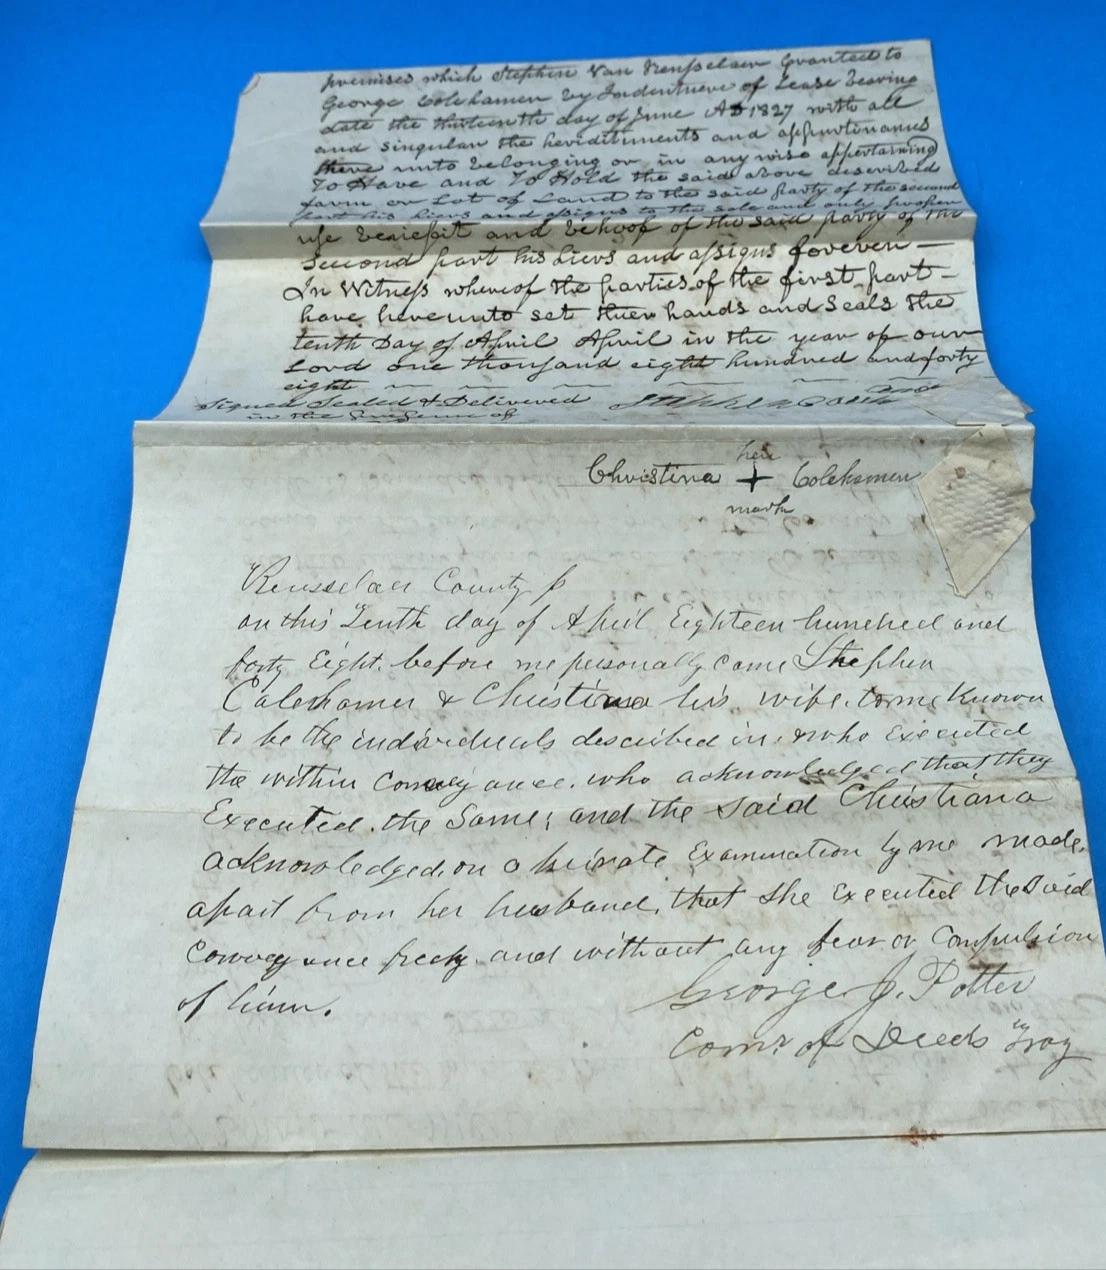 premises which Stephen Van Rensselaer Granted to
George Colehamer by Indenture of Lease bearing
date the thirteenth day of June AD 1827 with all
and singular the heriditiments and appurtinances
there unto belonging or in any wise appertaining
To Have and To Hold the said above described
farm or Lot of Land to the said party of the second
part his heirs and assigns to the sole and only proper
use beniefit and behoof of the said party of the
Second part his hiers and assigns forever —
In Witness whereof the parties of the first part —
have hereunto set their hands and Seals the
tenth Day of April April in the year of our
Lord one thousand eight hundred and forty
eight
Signed Sealed & Delivered
in the Presence of
her
Christina + Colehamer
mark
Rensselaer County
on this Tenth day of April Eighteen hundred and
forty Eight. before me personally came Stephen
Colehamer & Christina his wife. to me Known
to be the individuals described in, & who Executed
the within Conveyance. who acknowledged that they
Executed. the Same; and the said Christiana
acknowledged, on a private Examination by me made.
apart from her husband, that she Executed the Said
Conveyance freely. and without any fear or Compulsion
of him.
George J. Potter
Comr. of Deeds Troy